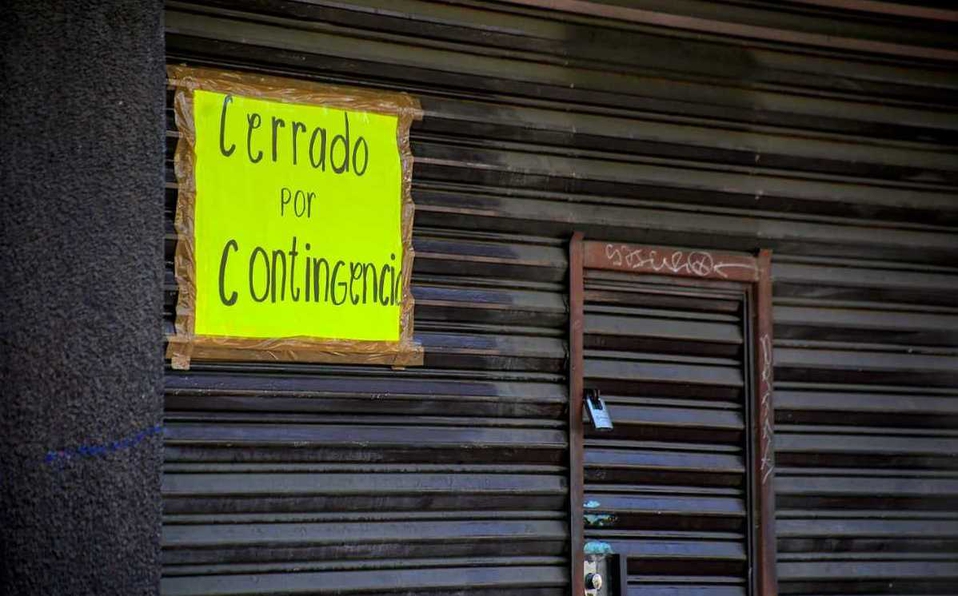 Cerrado
por
Contingencia